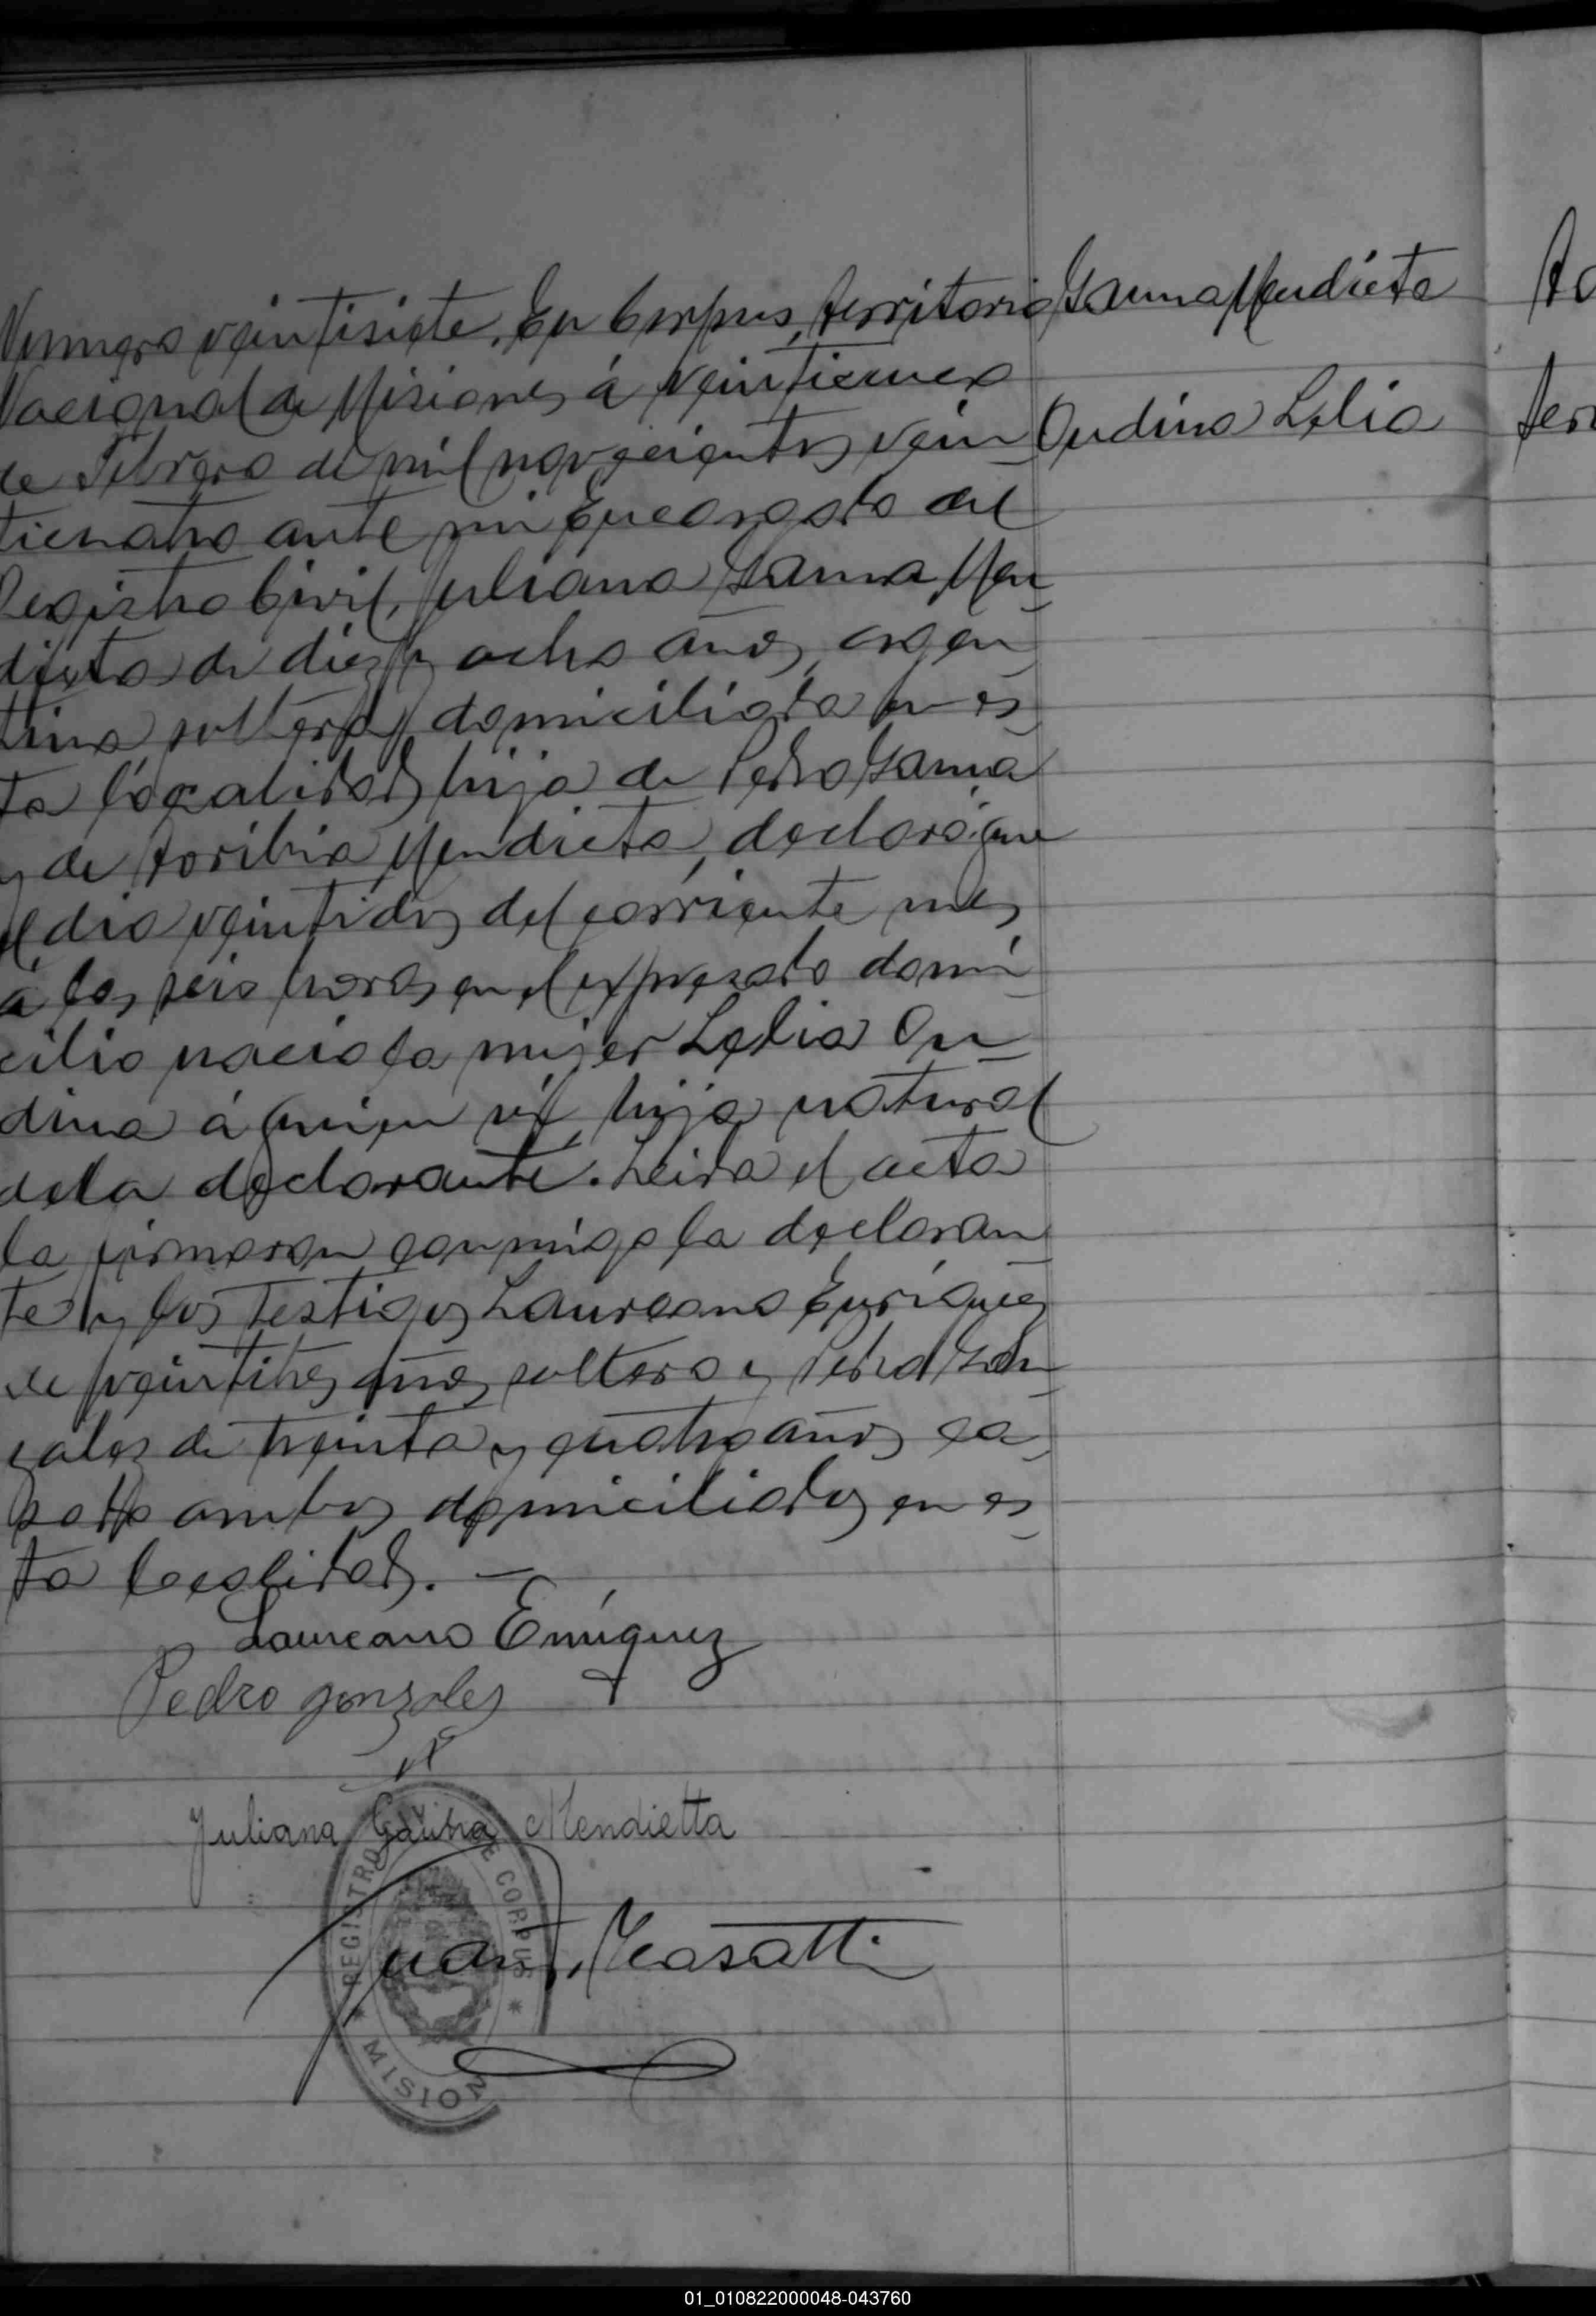 Numero veintisiete. En Corpus, Territorio
Nacional de Misiones á veintinueve
de Febrero de mil novecientos vein
ticuatro ante mi Encargado del
Registro Civil, Juliana Gauna Men
dieta de diez y ocho años, argen
tina soltera, domiciliada en es
ta localidad, hija de Pedro Gauna
y de Toribia Mendieta, declaró: que
el dia veintidos del corriente mes
á las seis horas en el expresado domi
cilio nació la mujer Lelia On
dina á quien ví, hija natural
de la declarante. Leida el acta
la firmaron conmigo la declaran
te y los testigos Laureano Enriquez
de veintitres años, soltero y Pedro Gon
zales de treinta y cuatro años ca
sado ambos domiciliados en es
ta localidad. —
Laureano Enríquez
Pedro gonzales
Juliana Gauna Mendietta
Juan
REGISTRO CIVIL DE CORPUS
* MISIONES *
Gauna Mendieta
Ondina Lelia
01_010822000048-043760